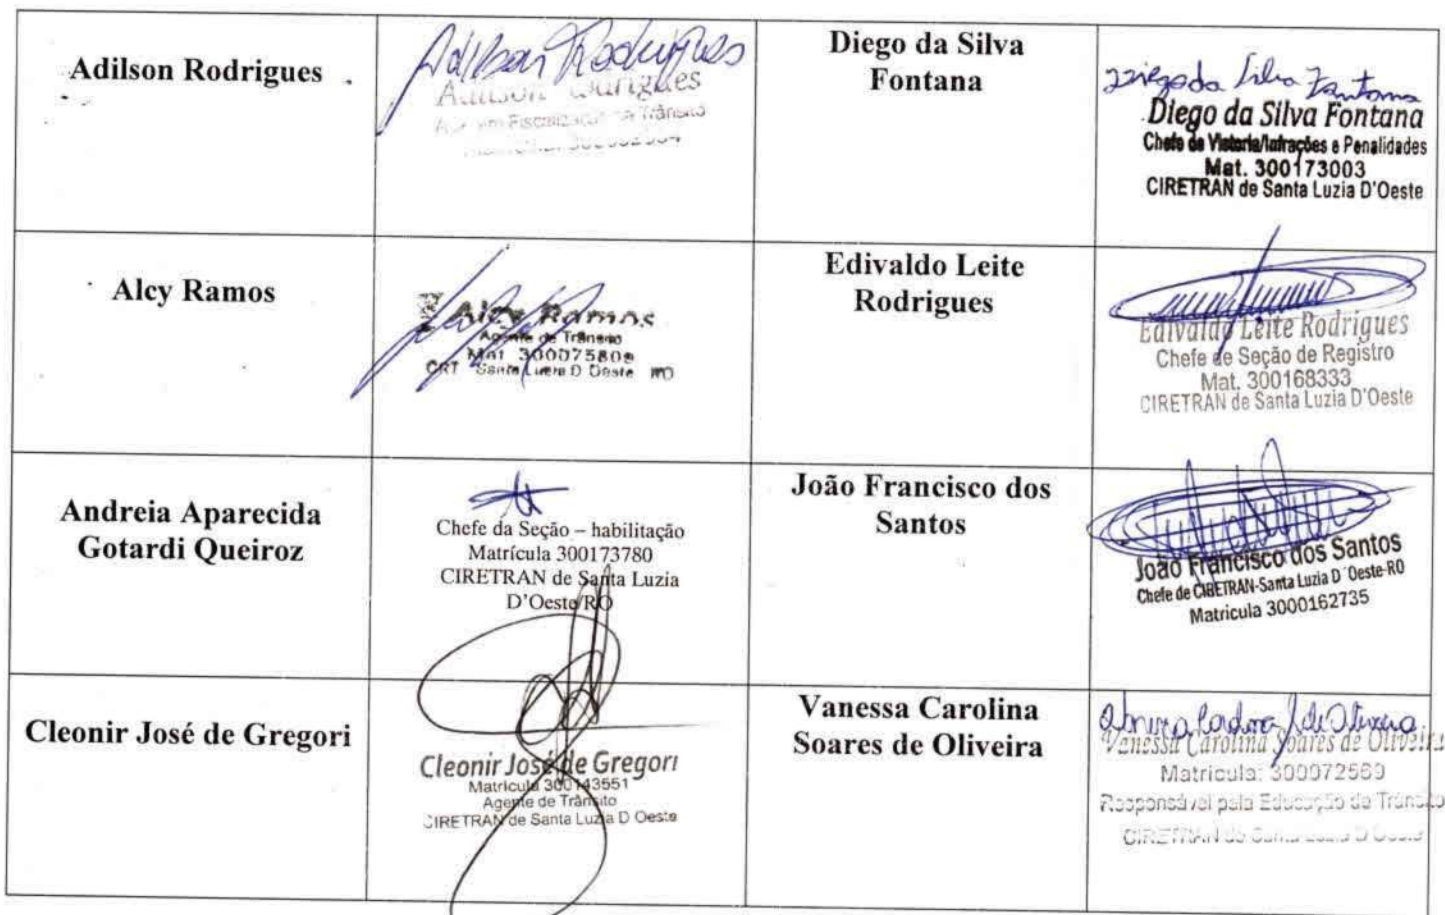 Adilson Rodrigues
Adilson Rodrigues
Trânsito
Diego da Silva
Fontana
Diego da Silva Fontana
Diego da Silva Fontana
Chefe de Vistoria/Infrações e Penalidades
Mat. 300173003
CIRETRAN de Santa Luzia D'Oeste
Alcy Ramos
Alcy Ramos
Agente de Trânsito
Mat.
CRT Santa Luzia D Oeste RO
Edivaldo Leite
Rodrigues
Edivaldo Leite Rodrigues
Chefe de Seção de Registro
Mat. 300168333
CIRETRAN de Santa Luzia D'Oeste
Andreia Aparecida
Gotardi Queiroz
Chefe da Seção – habilitação
Matrícula 300173780
CIRETRAN de Santa Luzia
D'Oeste/RO
João Francisco dos
Santos
João Francisco dos Santos
Chefe de CIRETRAN-Santa Luzia D´Oeste-RO
Matricula 3000162735
Cleonir José de Gregori
Cleonir José de Gregori
Matricula 300143551
Agente de Trânsito
CIRETRAN de Santa Luzia D Oeste
Vanessa Carolina
Soares de Oliveira
Vanessa Carolina Soares de Oliveira
Matricula: 300072569
Responsável pela Educação de Trânsito
CIRETRAN de Santa Luzia D Oeste